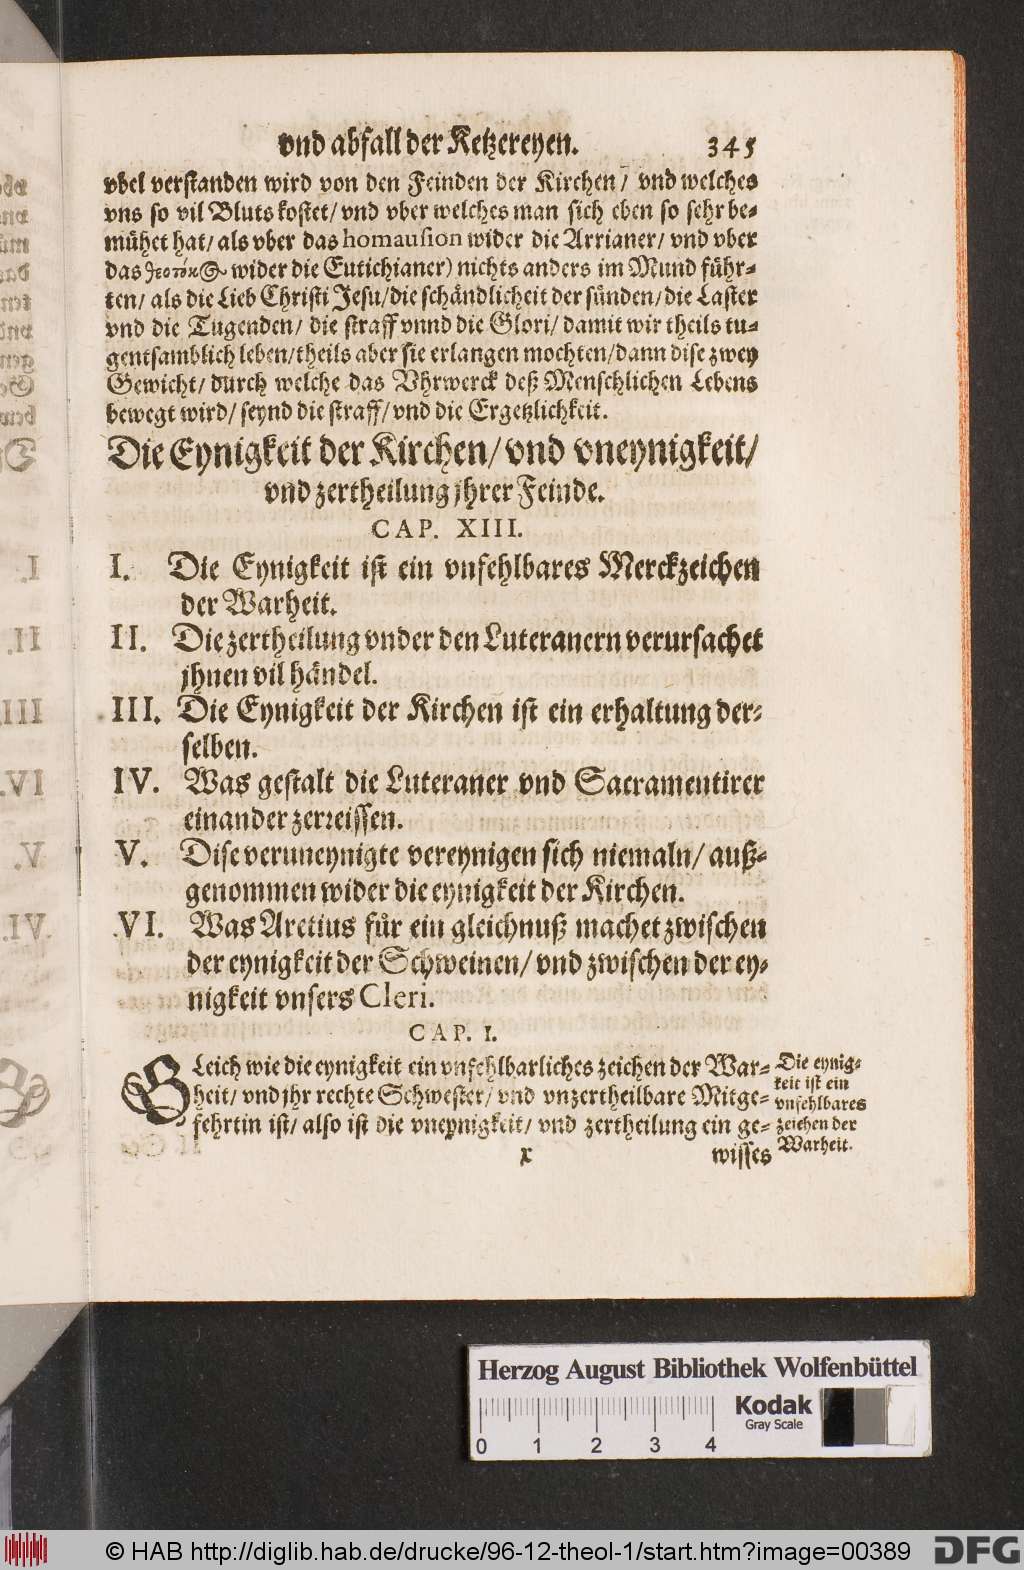 vnd abfall der Ketzereyen. 345
vbel verstanden wird von den Feinden der Kirchen / vnd welches
vns so vil Bluts kostet / vnd vber welches man sich eben so sehr be-
mühet hat / als vber das homausion wider die Arrianer / vnd vber
das wider die Eutichianer) nichts anders im Mund führ-
ten / als die Lieb Christi Jesu / die schändlicheit der sünden / die Laster
vnd die Tugenden / die straff vnnd die Glori / damit wir theils tu-
gentsamblich leben / theils aber sie erlangen mochten / dann dise zwey
Gewicht / durch welche das Vhrwerck deß Menschlichen Lebens
bewegt wird / seynd die straff / vnd die Ergetzlichkeit.
Die Eynigkeit der Kirchen / vnd vneynigkeit /
vnd zertheilung jhrer Feinde.
CAP. XIII.
I. Die Eynigkeit ist ein vnfehlbares Merckzeichen
der Warheit.
II. Die zertheilung vnder den Luteranern verursachet
jhnen vil händel.
III. Die Eynigkeit der Kirchen ist ein erhaltung der-
selben.
IV. Was gestalt die Luteraner vnd Sacramentirer
einander zerreissen.
V. Dise veruneynigte vereynigen sich niemaln / auß-
genommen wider die eynigkeit der Kirchen.
VI. Was Aretius für ein gleichnuß machet zwischen
der eynigkeit der Schweinen / vnd zwischen der ey-
nigkeit vnsers Cleri.
CAP. I.
GLeich wie die eynigkeit ein vnfehlbarliches zeichen der War-
heit / vnd jhr rechte Schwester / vnd vnzertheilbare Mitge-
fehrtin ist / also ist die vneynigkeit / vnd zertheilung ein ge-
x wisses
Die eynig-
keit ist ein
vnfehlbares
zeichen der
Warheit.
Herzog August Bibliothek Wolfenbüttel
Kodak
Gray Scale
0 1 2 3 4
© HAB http://diglib.hab.de/drucke/96-12-theol-1/start.htm?image=00389
DFG